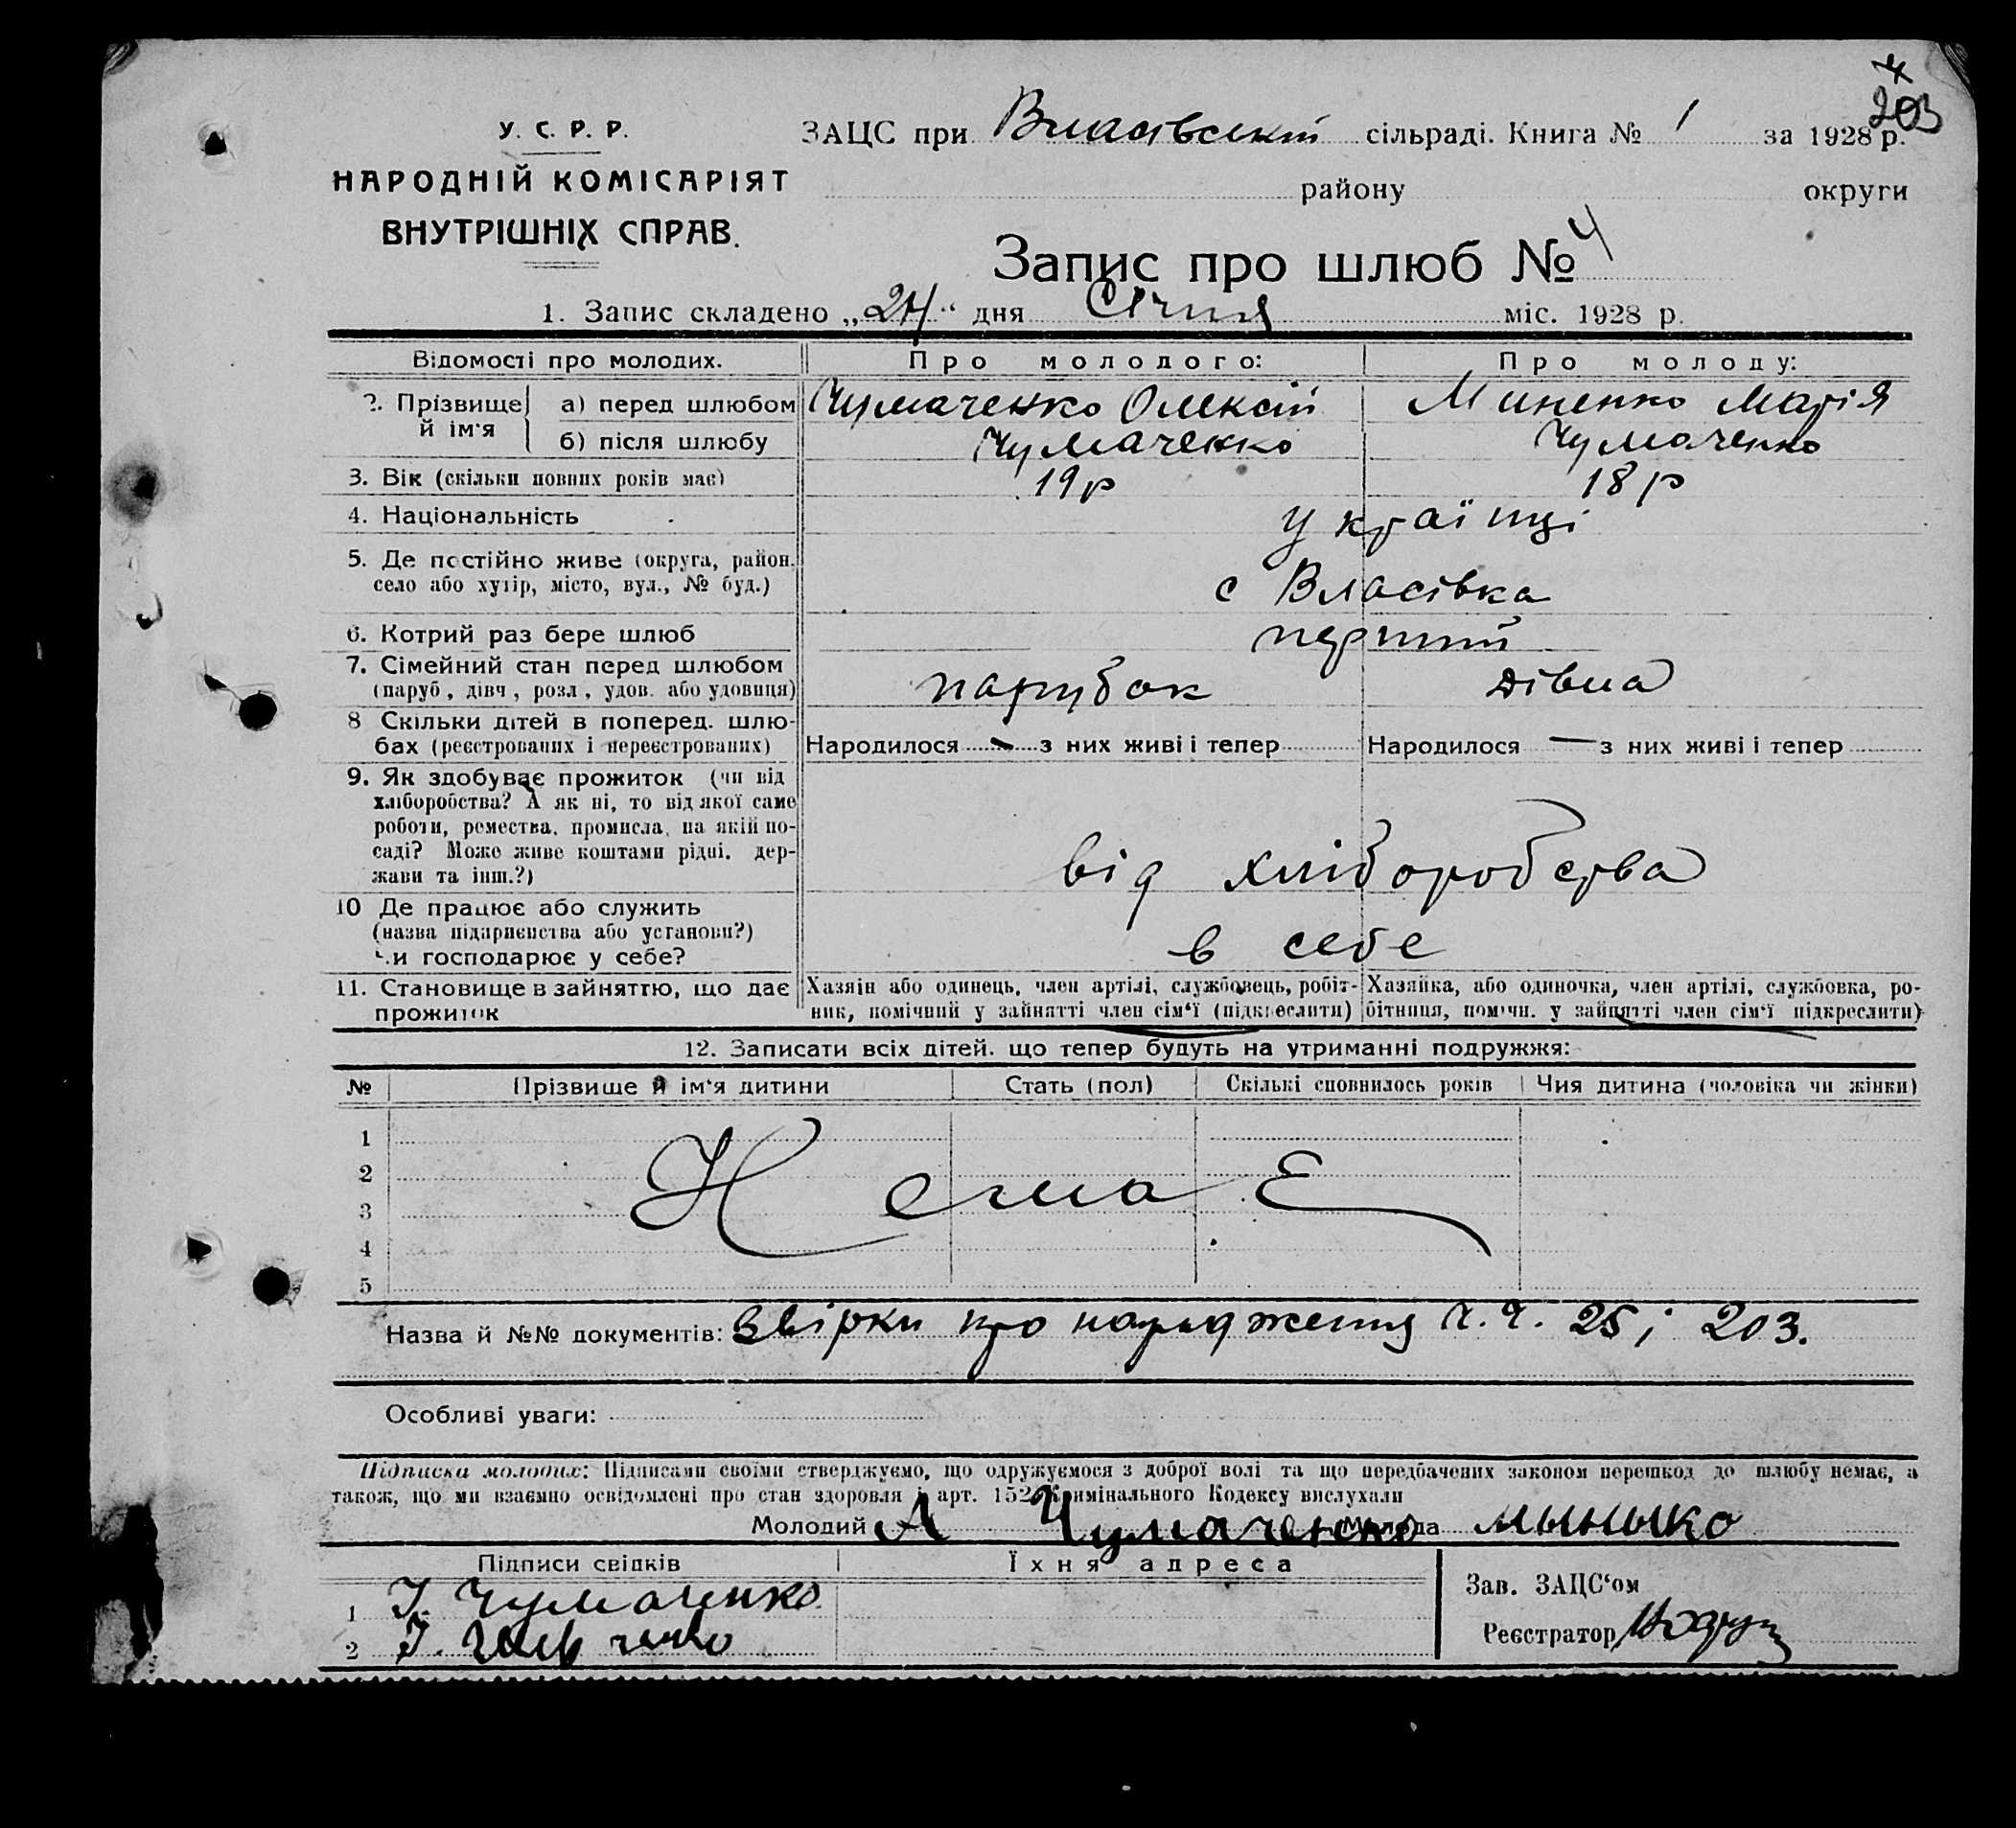 203
У. С. Р. Р.
НАРОДНІЙ КОМІСАРІЯТ
ВНУТРІШНІХ СПРАВ.
ЗАЦС при Власівській сільраді. Книга № 1 за 1928 р.
району округи
Запис про шлюб № 4
1. Запис складено „24“ дня Січня міс. 1928 р.
Відомості про молодих. Про молодого: Про молоду:
2. Прізвище й ім'я а) перед шлюбом Чумаченко Олексій Миненко Марія
б) після шлюбу Чумаченко Чумаченко
3. Вік (скільки повних років має) 19 р 18 р
4. Національність українці
5. Де постійно живе (округа, район,
село або хутір, місто, вул., № буд.) с Власівка
6. Котрий раз бере шлюб перший
7. Сімейний стан перед шлюбом
(паруб., дівч., розл., удов. або удовиця) парубок дівча
8 Скільки дітей в поперед. шлю-
бах (реєстрованих і нереєстрованих) Народилося — з них живі і тепер Народилося — з них живі і тепер
9. Як здобуває прожиток (чи від
хліборобства? А як ні, то від якої саме
роботи, ремества, промисла, на якій по-
саді? Може живе коштами рідні, дер-
жави та інш.?) від хліборобства
10 Де працює або служить
(назва підприємства або установи?)
чи господарює у себе? в себе
11. Становище в зайняттю, що дає
прожиток
Хазяін або одинець, член артілі, службовець, робіт-
ник, помічний у зайнятті член сім'ї (підкреслити)
Хазяйка, або одиночка, член артілі, службовка, ро-
бітниця, помічн. у зайнятті член сім'ї підкреслити)
12. Записати всіх дітей, що тепер будуть на утриманні подружжя:
№ Прізвище й ім'я дитини Стать (пол) Скількі сповнилось років Чия дитина (чоловіка чи жінки)
1
2
3 Немає
4
5
Назва й №№ документів: Звірки про народження ч.ч. 25 і 203.
Особливі уваги:
Підписка молодих: Підписами своїми стверджуємо, що одружуємося з доброї волі та що передбачених законом перешкод до шлюбу немає, а
також, що ми взаємно освідомлені про стан здоровля і арт. 152 Кримінального Кодексу вислухали
Молодий А Чумаченко Молода мыныко
Підписи свідків Їхня адреса
1 І. Чумаченко
2 І.
Зав. ЗАЦС'ом
Реєстратор